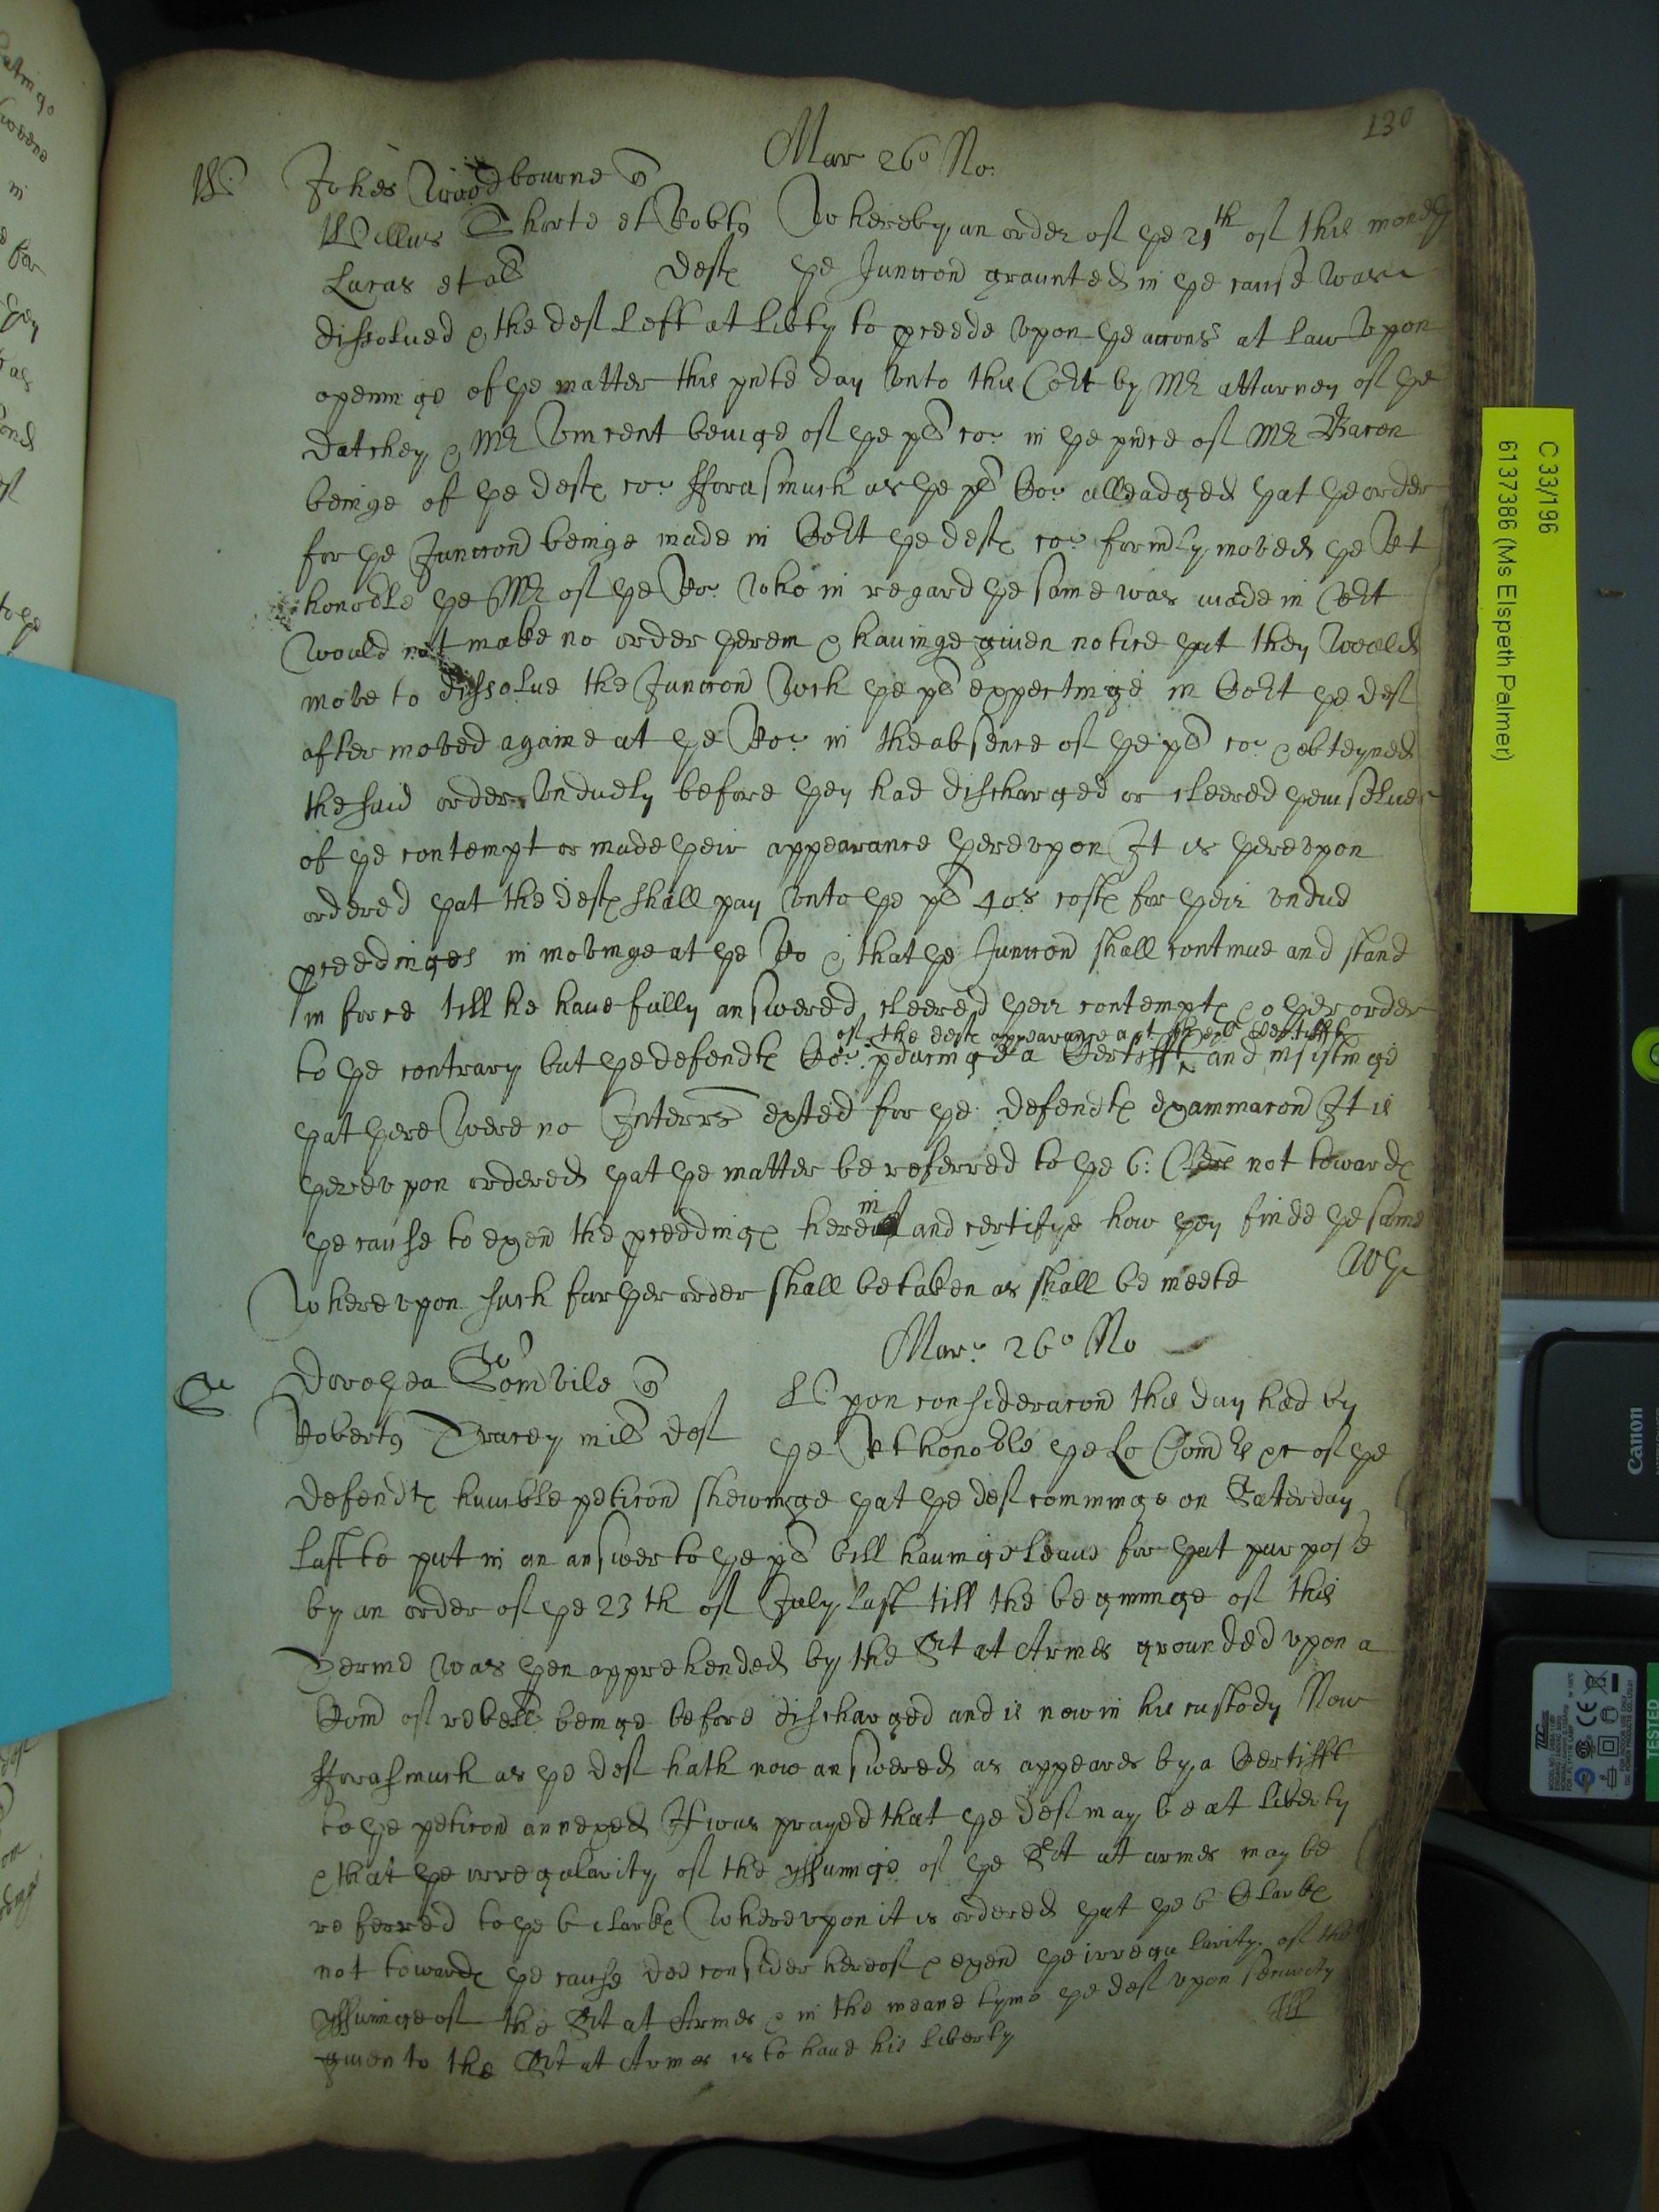 130
Mar 26o No:
W: Johes Woodbourne q
Willus Shorte et Robtus Whereby an order of ye 21th of this moneth
Lucas et al deftes ye Juncon graunted in ye cause was
dissolued & the def left at libty to pceede vpon ye accons at law vpon
openinge of ye matter this pnte day vnto this Cort by Mr Attarney of ye
Datchey & Mr Vincent beinge of ye pl co: in ye pnce of Mr Bacon
beinge of ye deftes co: fforasmuch as ye pl Co: alleadged yat ye order
for ye Juncon beinge made in Cort ye deftes co: formly moved ye Rt
honoble ye Mr of ye Ro: who in regard ye same was made in Cort
would not make no order yerein & hauinge giuen notice yat they would
move to dissolue the Juncon wch ye pl expectinge in Cort ye def
after moved againe at ye Ro: in the absence of ye pl co: & obteyned
the said order vnduely before yey had discharged or cleered yemselues
of ye contempt or made yeir appearance yerevpon It is yerevpon
ordered yat the deftes shall pay vnto ye pl 40s costes for yeir vndue
pceedinges in movinge at ye Ro & that ye Juncon shall continue and stand
in force till he haue fully answered cleered yeir contemptes & oyer order
of the deftes appearance at
to ye contrary but ye defendtes Co: pducinge a Certifft and insistinge
yat yere were no Interrs exted for ye defendtes examinacon It is
yerevpon ordered yat ye matter be referred to ye 6: Clers not towardes
ye cause to exen the pceedinges herein and certifye how yey finde ye same
wherevpon such furyer order shall be taken as shall be meete
Mar: 26o No
Doroyea Somvile q Vpon consideracon this day had by
Robertus Tracey mil def ye Rt honoble ye Lo Comrs &c of ye
defendtes humble peticon shewinge yat ye def comminge on Saterday
last to put in an answer to ye pl bill hauinge leaue for yat purpose
by an order of ye 23th of July last till the beginninge of this
Terme was yen apprehended by the Srt at Armes grounded vpon a
Com of rebell beinge before discharged and is now in his custody Now
fforasmuch as ye def hath now answered as appeares by a Certifft
to ye peticon annexed It was prayed that ye def may be at liberty
& that ye irregularity of the yssuinge of ye Srt at armes may be
referred to ye 6 clarkes Wherevpon it is ordered yat ye 6 Clarkes
not towardes ye cause doe consider hereof & exen ye irregularity of the
yssuinge of the Srt at Armes & in the meane tyme ye def vpon security
giuen to the Srt at Armes is to haue his liberty
C 33/196
6137386 (Ms Elspeth Palmer)
Canon
TESTED